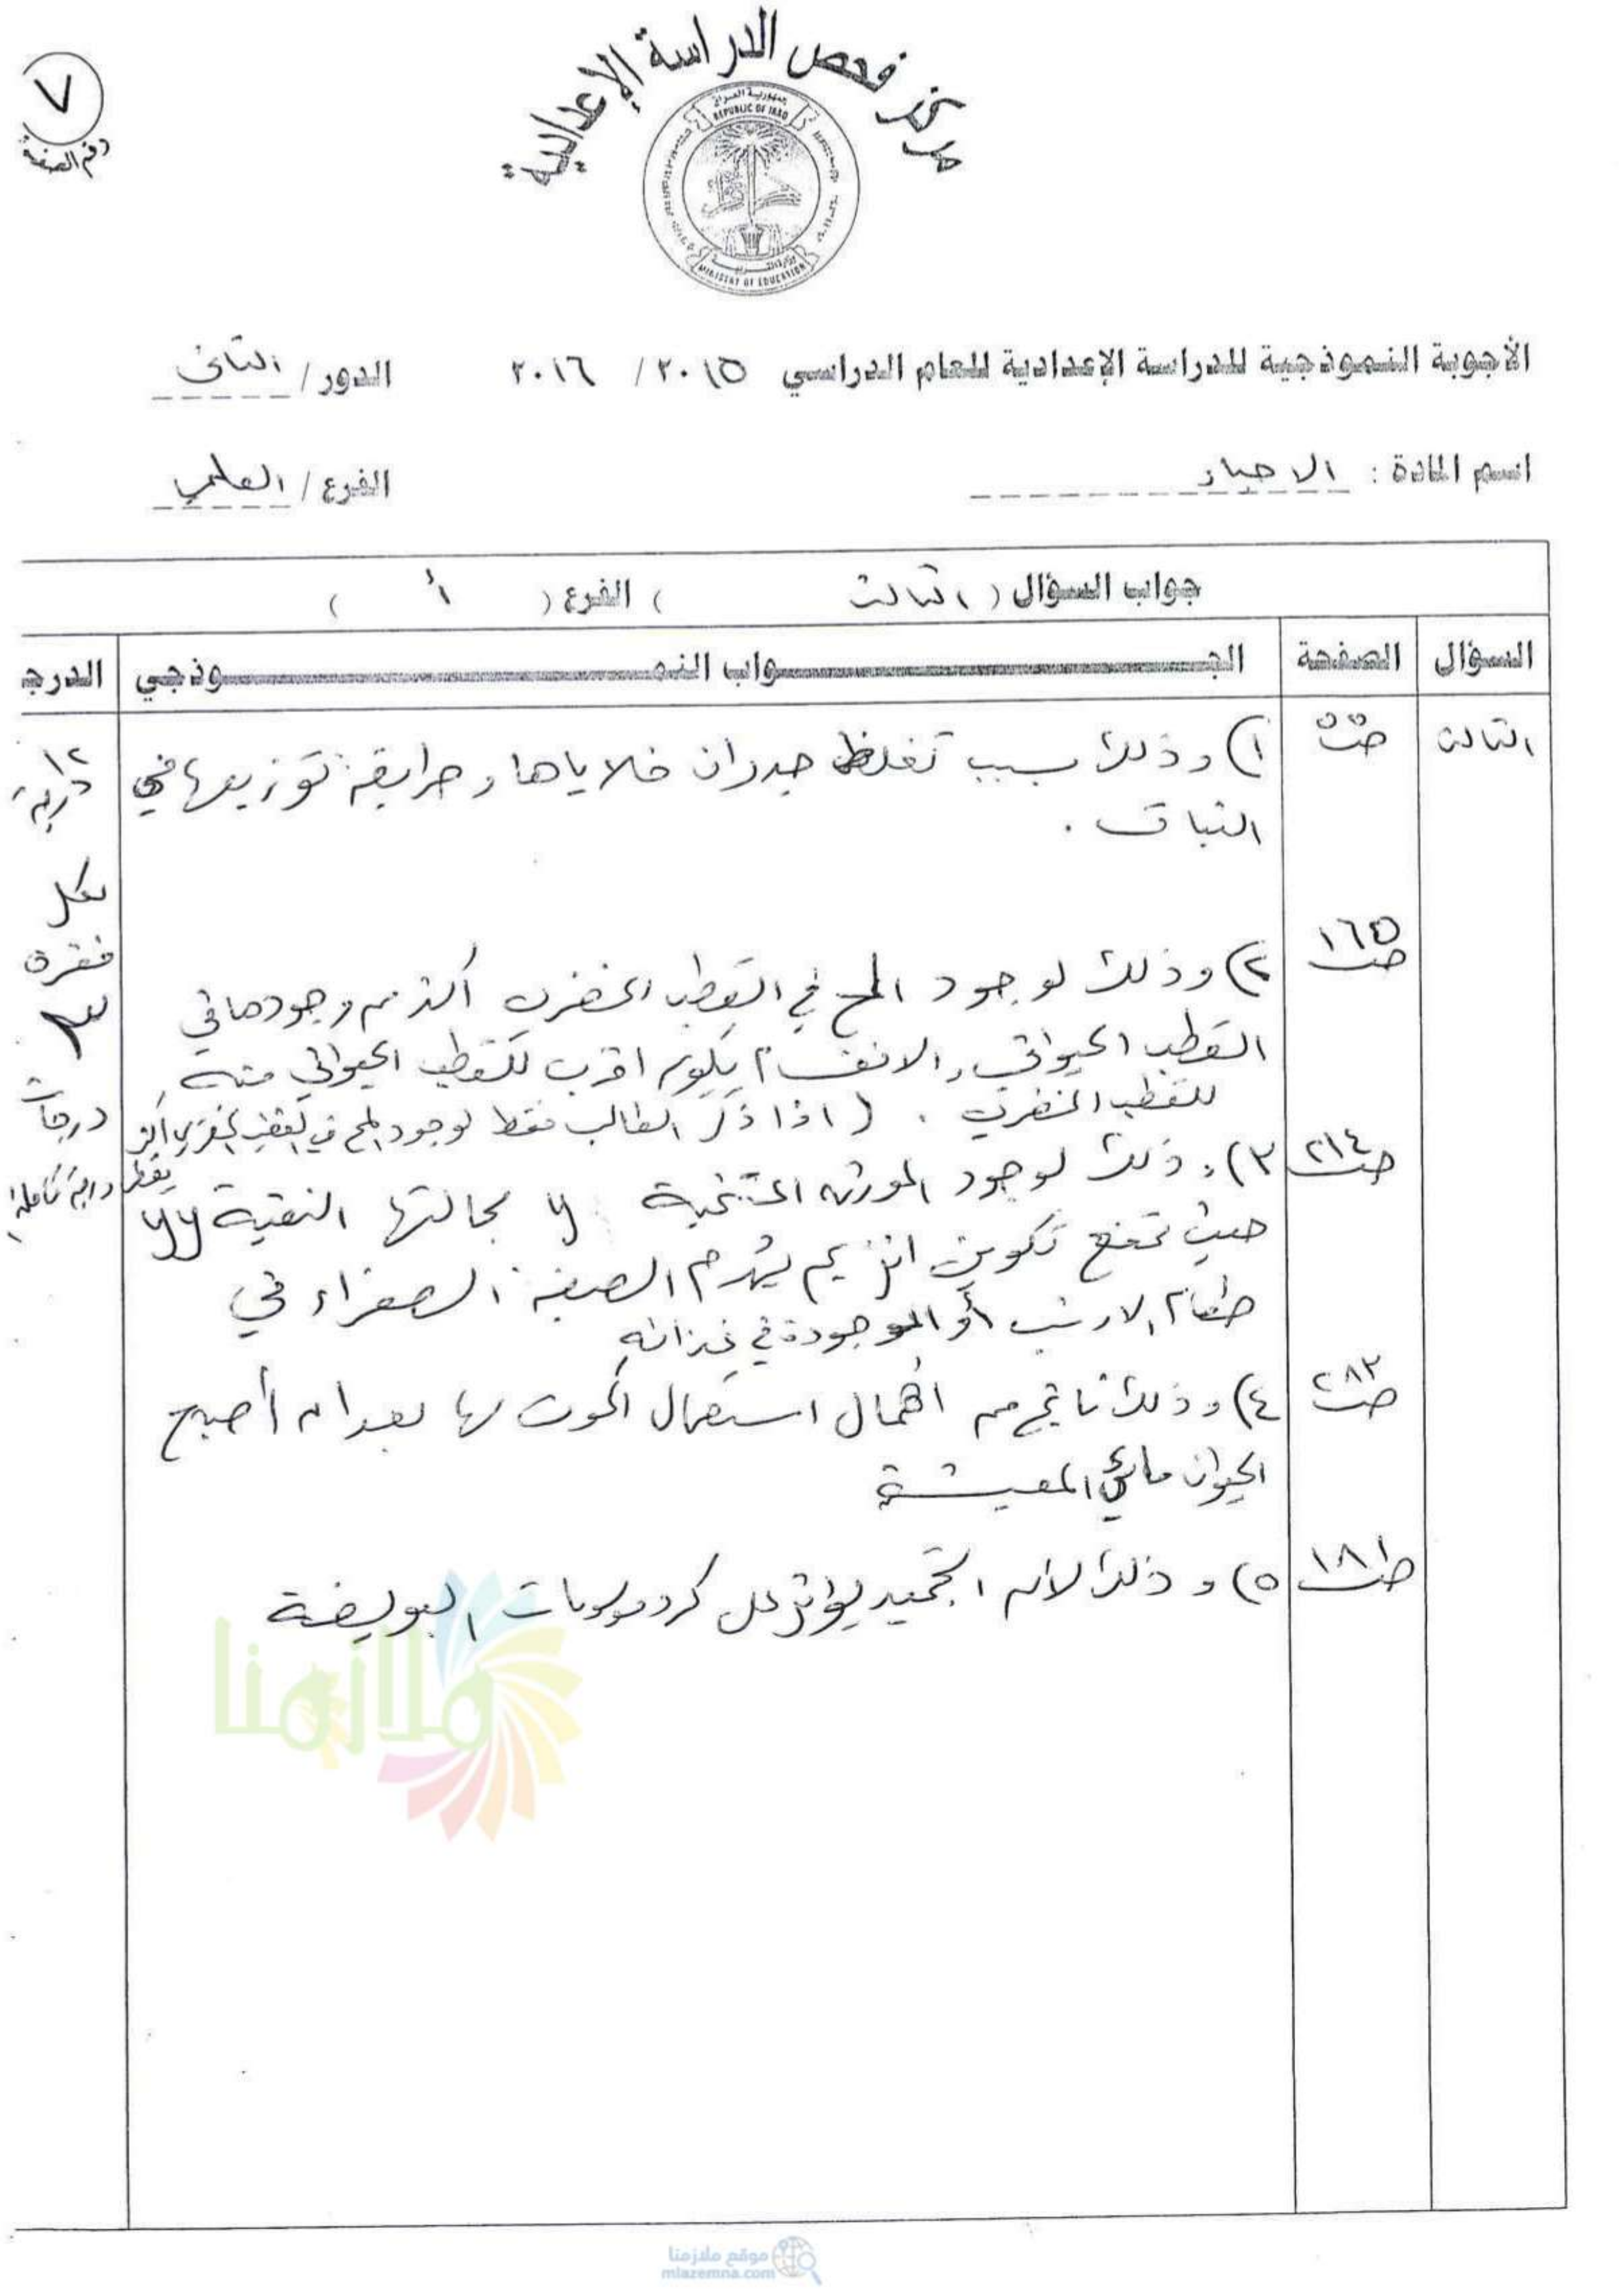 مركز فحص الدراسة الإعدادية
٧
رقم الصفحة
جمهورية العراق
REPUBLIC OF IRAQ
وزارة التربية
MINISTRY OF EDUCATION
الأجوبة النموذجية للدراسة الإعدادية للعام الدراسي ٢٠١٥ / ٢٠١٦ الدور / الثاني
اسم المادة : الاحياء الفرع / العلمي
جواب السؤال ( الثالث ) الفرع ( أ )
السؤال الصفحة الجـــواب النمـــوذجي الدرج
الثالث ص٥٥ ١) وذلك بسبب تغلظ جدران خلاياها وطريقة توزيعها في
النبات .
١٢ درجة
لكل
فقرة
٣
درجات
ص١٦٥ ٢) وذلك لوجود المح في القطب الخضري أكثر من وجودها في
القطب الحيواني والانقسام يكون اقرب للقطب الحيواني منه
للقطب الخضري . ( اذا ذكر الطالب فقط لوجود المح في القطب الخضري أكثر
يعطى درجة كاملة )
ص٢١٤ ٣) وذلك لوجود المورثه المتنحية y بحالتها النقية yy
حيث تمنع تكوين انزيم يهدم الصبغة الصفراء في
طعام الارنب أو الموجودة في غذائه
ص٢٨٣ ٤) وذلك ناتج من اهمال استعمال الحوت لها بعد ان أصبح
الحيوان مائي المعيشة
ص١٨١ ٥) وذلك لأن التجميد يؤثر على كروموسومات البويضة
ملازمنا
موقع ملازمنا
mlazemna.com